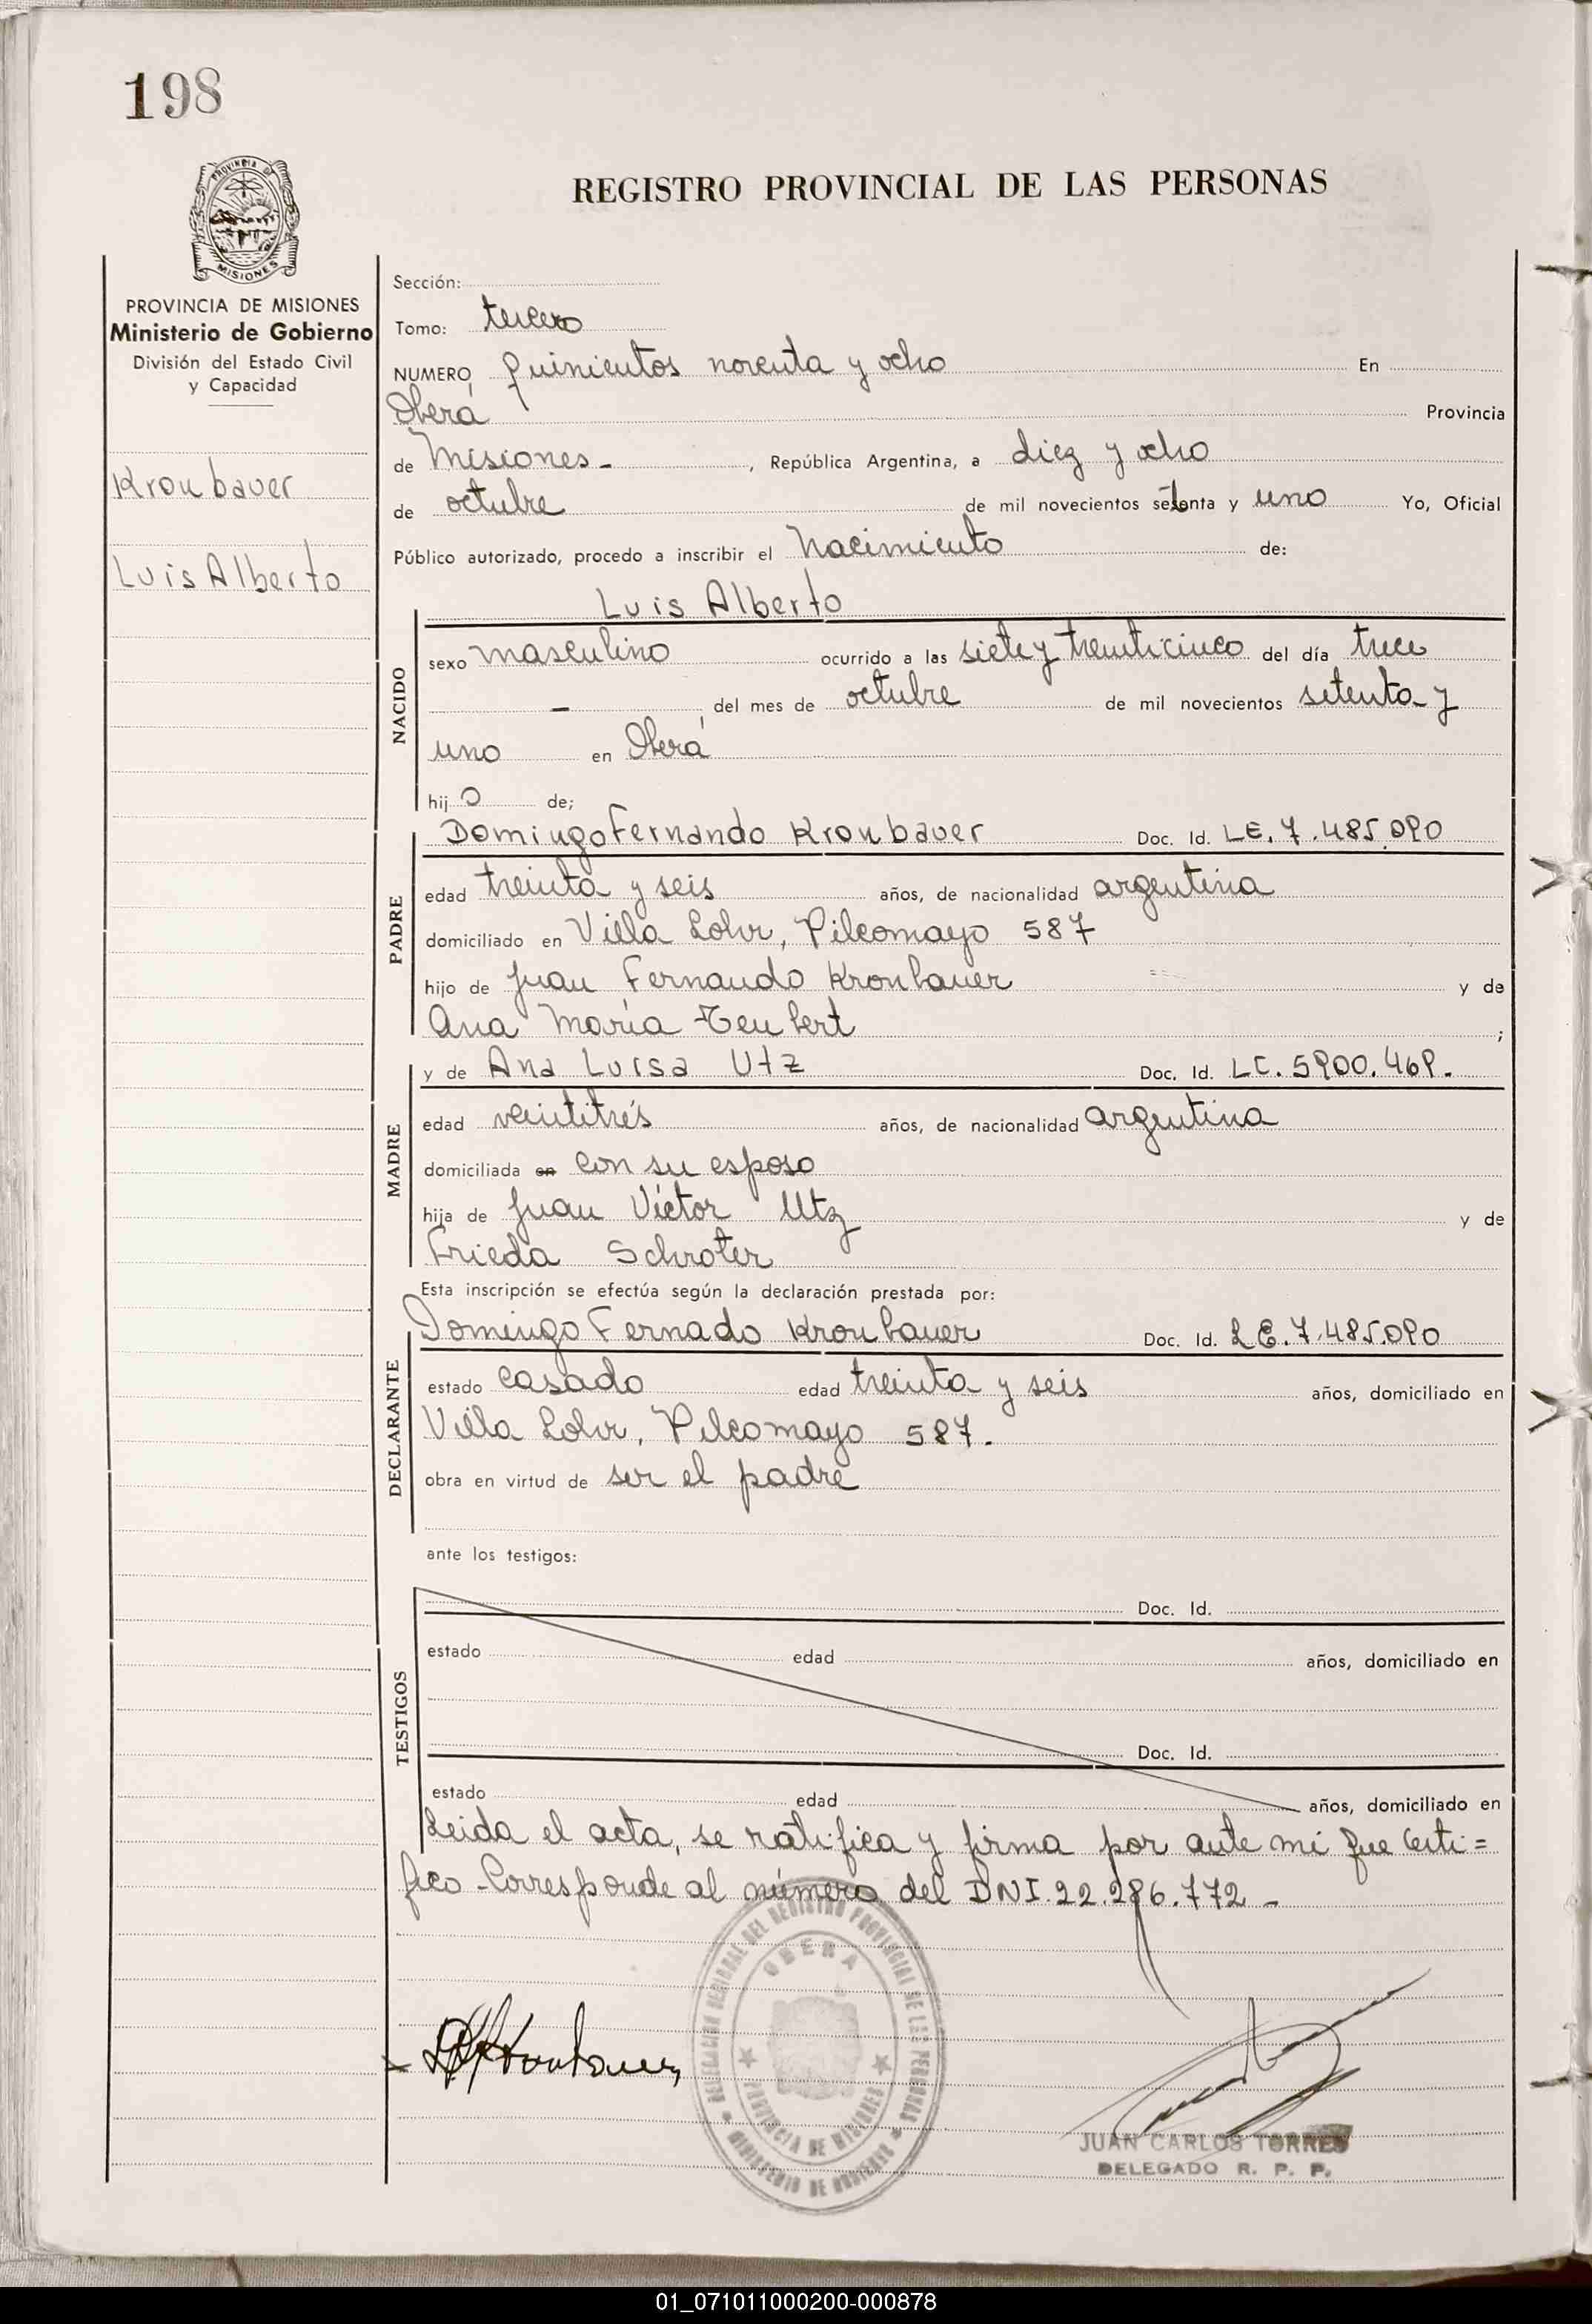 198
PROVINCIA DE MISIONES
REGISTRO PROVINCIAL DE LAS PERSONAS
PROVINCIA DE MISIONES
Ministerio de Gobierno
División del Estado Civil
y Capacidad
Kronbauer
Luis Alberto
Sección:
Tomo: tercero
NUMERO, Quinientos noventa y ocho En
Oberá Provincia
de Misiones - , República Argentina, a diez y ocho
de octubre de mil novecientos setenta y uno Yo, Oficial
Público autorizado, procedo a inscribir el Nacimiento de:
Luis Alberto
NACIDO
sexo masculino ocurrido a las siete y treinticinco del día trece
- del mes de octubre de mil novecientos setenta y
uno en Oberá
hij o de;
PADRE
Domingo Fernando Kronbauer Doc. Id. LE. 7.485.090
edad treinta y seis años, de nacionalidad argentina
domiciliado en Villa Lohr, Pilcomayo 587
hijo de Juan Fernando Kronbauer y de
Ana María Teubert ;
MADRE
y de Ana Luisa Utz Doc. Id. LC. 5900.469.
edad veintitrés años, de nacionalidad argentina
domiciliada en con su esposo
hija de Juan Víctor Utz y de
Frieda Schroter
Esta inscripción se efectúa según la declaración prestada por:
DECLARANTE
Domingo Fernado Kronbauer Doc. Id. LE. 7.485.090
estado casado edad treinta y seis años, domiciliado en
Villa Lohr, Pilcomayo 587.
obra en virtud de ser el padre
ante los testigos:
TESTIGOS
Doc. Id.
estado edad años, domiciliado en
Doc. Id.
estado edad años, domiciliado en
Leida el acta, se ratifica y firma por ante mi que Certi=
fico - Corresponde al número del DNI. 22.286.772 -
DELEGACIÓN REGIONAL DEL REGISTRO PROVINCIAL DE LAS PERSONAS
OBERA
PROVINCIA DE MISIONES
MINISTERIO DE GOBIERNO
JUAN CARLOS TORRES
DELEGADO R. P. P.
01_071011000200-000878